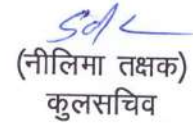 Sd/-
(नीलिमा तक्षक)
कुलसचिव